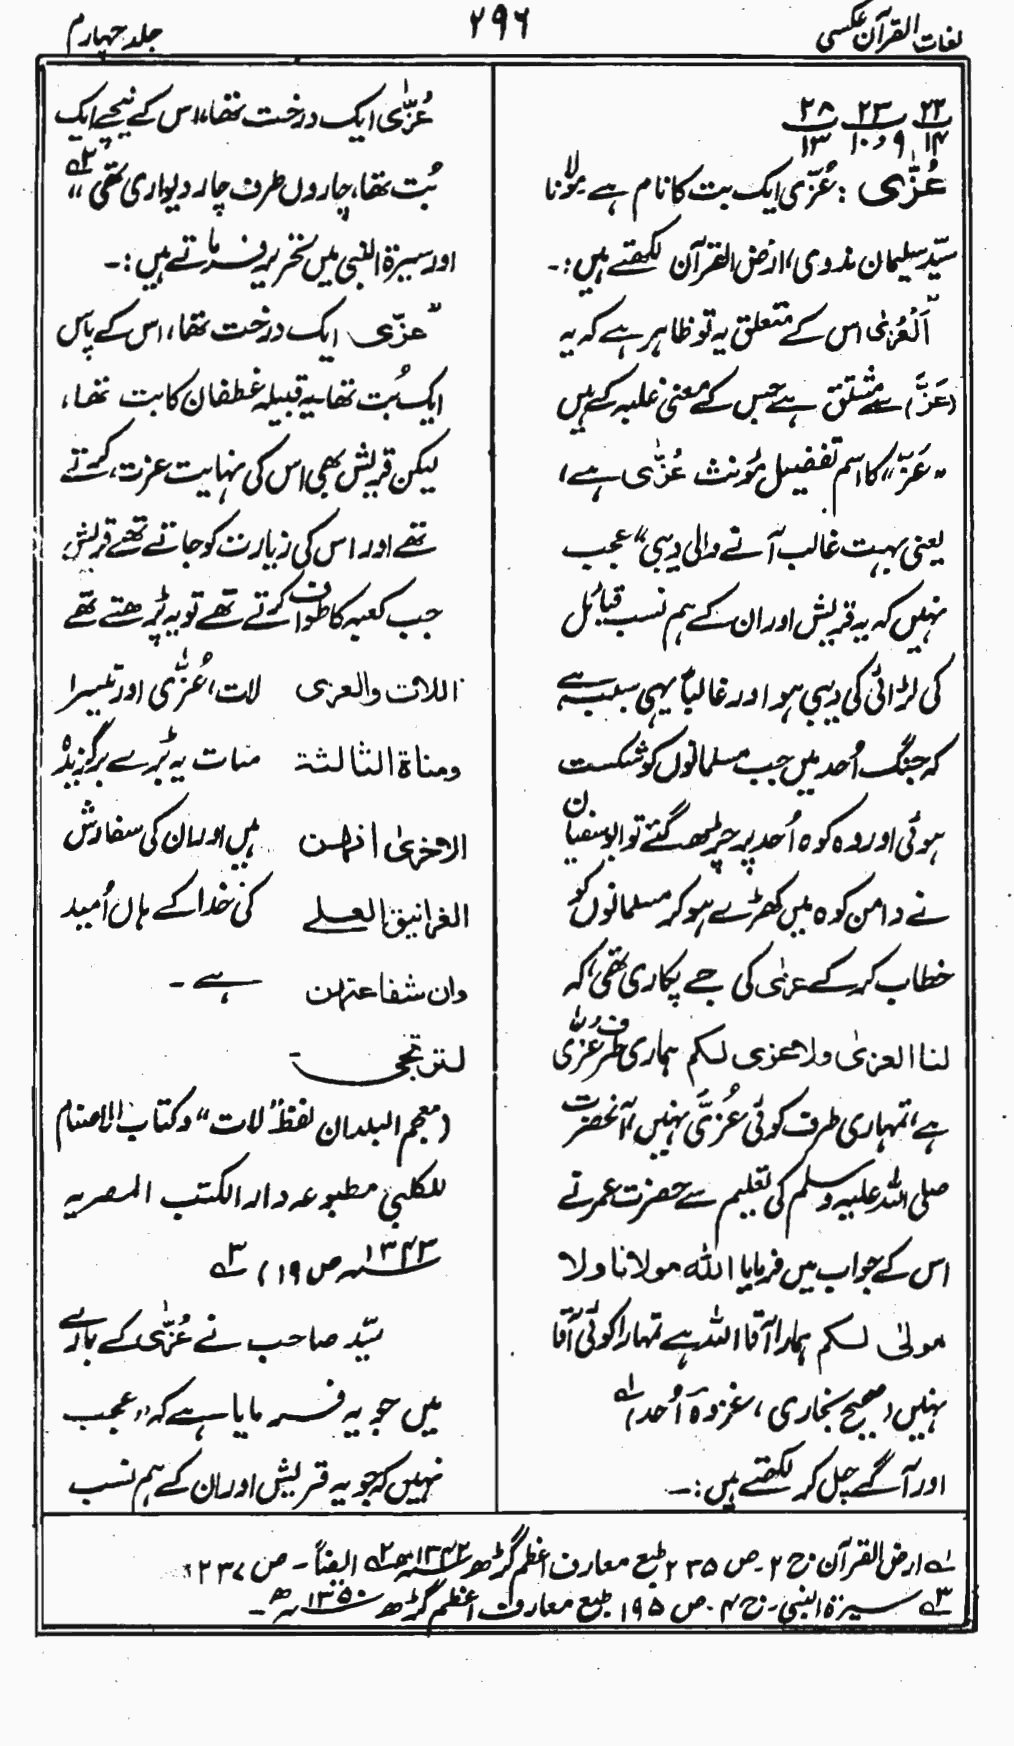 لغات القرآن عکسی
۲۹۶
جلد چہارم
۲۲ ۲۳ ۲۸
۱۴ ۹ و ۱۰ ۱۳
عُزّٰی : عُزّٰی ایک بت کا نام ہے مولانا
سیّد سلیمان ندوی، ارض القرآن لکھتے ہیں :۔
”اَلْعُزیٰ اس کے متعلق یہ تو ظاہر ہے کہ یہ
(عَزَّ) سے مشتق ہے جس کے معنی غلبہ کے ہیں
”عَزّ“ کا اسم تفضیل مؤنث عُزّٰی ہے،
یعنی بہت غالب آنے والی دیبی“ عجب
نہیں کہ یہ قریش اور ان کے ہم نسب قبائل
کی لڑائی کی دیبی ہو اور غالباً یہی سبب ہے
کہ جنگ اُحد میں جب مسلمانوں کو شکست
ہوئی اور وہ کوہ اُحد پر چڑھ گئے تو ابوسفیان
نے دامن کوہ میں کھڑے ہو کر مسلمانوں کو
خطاب کر کے عزیٰ کی جے پکاری تھی، کہ
لنا العزیٰ ولا عزی لکم ہماری طرف عُزّٰی
ہے، تمہاری طرف کوئی عُزیَّ نہیں، آنحضرت
صلی اللہ علیہ وسلم کی تعلیم سے حضرت عمر نے
اس کے جواب میں فرمایا اللہ مولانا ولا
مولیٰ لکم ہمارا آقا اللہ ہے تمہارا کوئی آقا
نہیں (صحیح بخاری، غزوہ اُحد) لہ
اور آگے چل کر لکھتے ہیں :۔
عُزّٰی ایک درخت تھا، اس کے نیچے ایک
بُت تھا، چاروں طرف چار دیواری تھی“ ۲ہ
اور سیرۃ النبی میں تحریر فرماتے ہیں :۔
”عزّی ایک درخت تھا، اس کے پاس
ایک بُت تھا یہ قبیلہ غطفان کا بت تھا،
لیکن قریش بھی اس کی نہایت عزت کرتے
تھے اور اس کی زیارت کو جاتے تھے قریش
جب کعبہ کا طواف کرتے تھے تو یہ پڑھتے تھے
اللات والعزی لات، عُزّٰی اور تیسرا
ومناۃ الثالثۃ منات یہ بڑے برگزیدہ
الاخریٰ انھن ہیں اور ان کی سفارش
الغرانیق العلے کی خدا کے ہاں اُمید
وان شفاعتھن ہے ۔
لترتجی ۔
(معجم البلدان لفظ ”لات“ و کتاب الاصنام
للکلبی مطبوعہ دار الکتب المصریہ
۱۳۴۳ ص ۱۹) ۳ہ
سیّد صاحب نے عُزّٰی کے بارے
میں جو یہ فرمایا ہے کہ ”عجب
نہیں کہ جو یہ قریش اور ان کے ہم نسب
لہ ارض القرآن ج ۲۔ ص ۲۳۵ طبع معارف اعظم گڑھ ۱۳۴۲ھ ۲ہ ایضاً ۔ ص ۲۳۷
۳ہ سیرۃ النبی ۔ ج ۴ ۔ ص ۱۹۵ طبع معارف اعظم گڑھ ۱۳۵۰ھ ۔